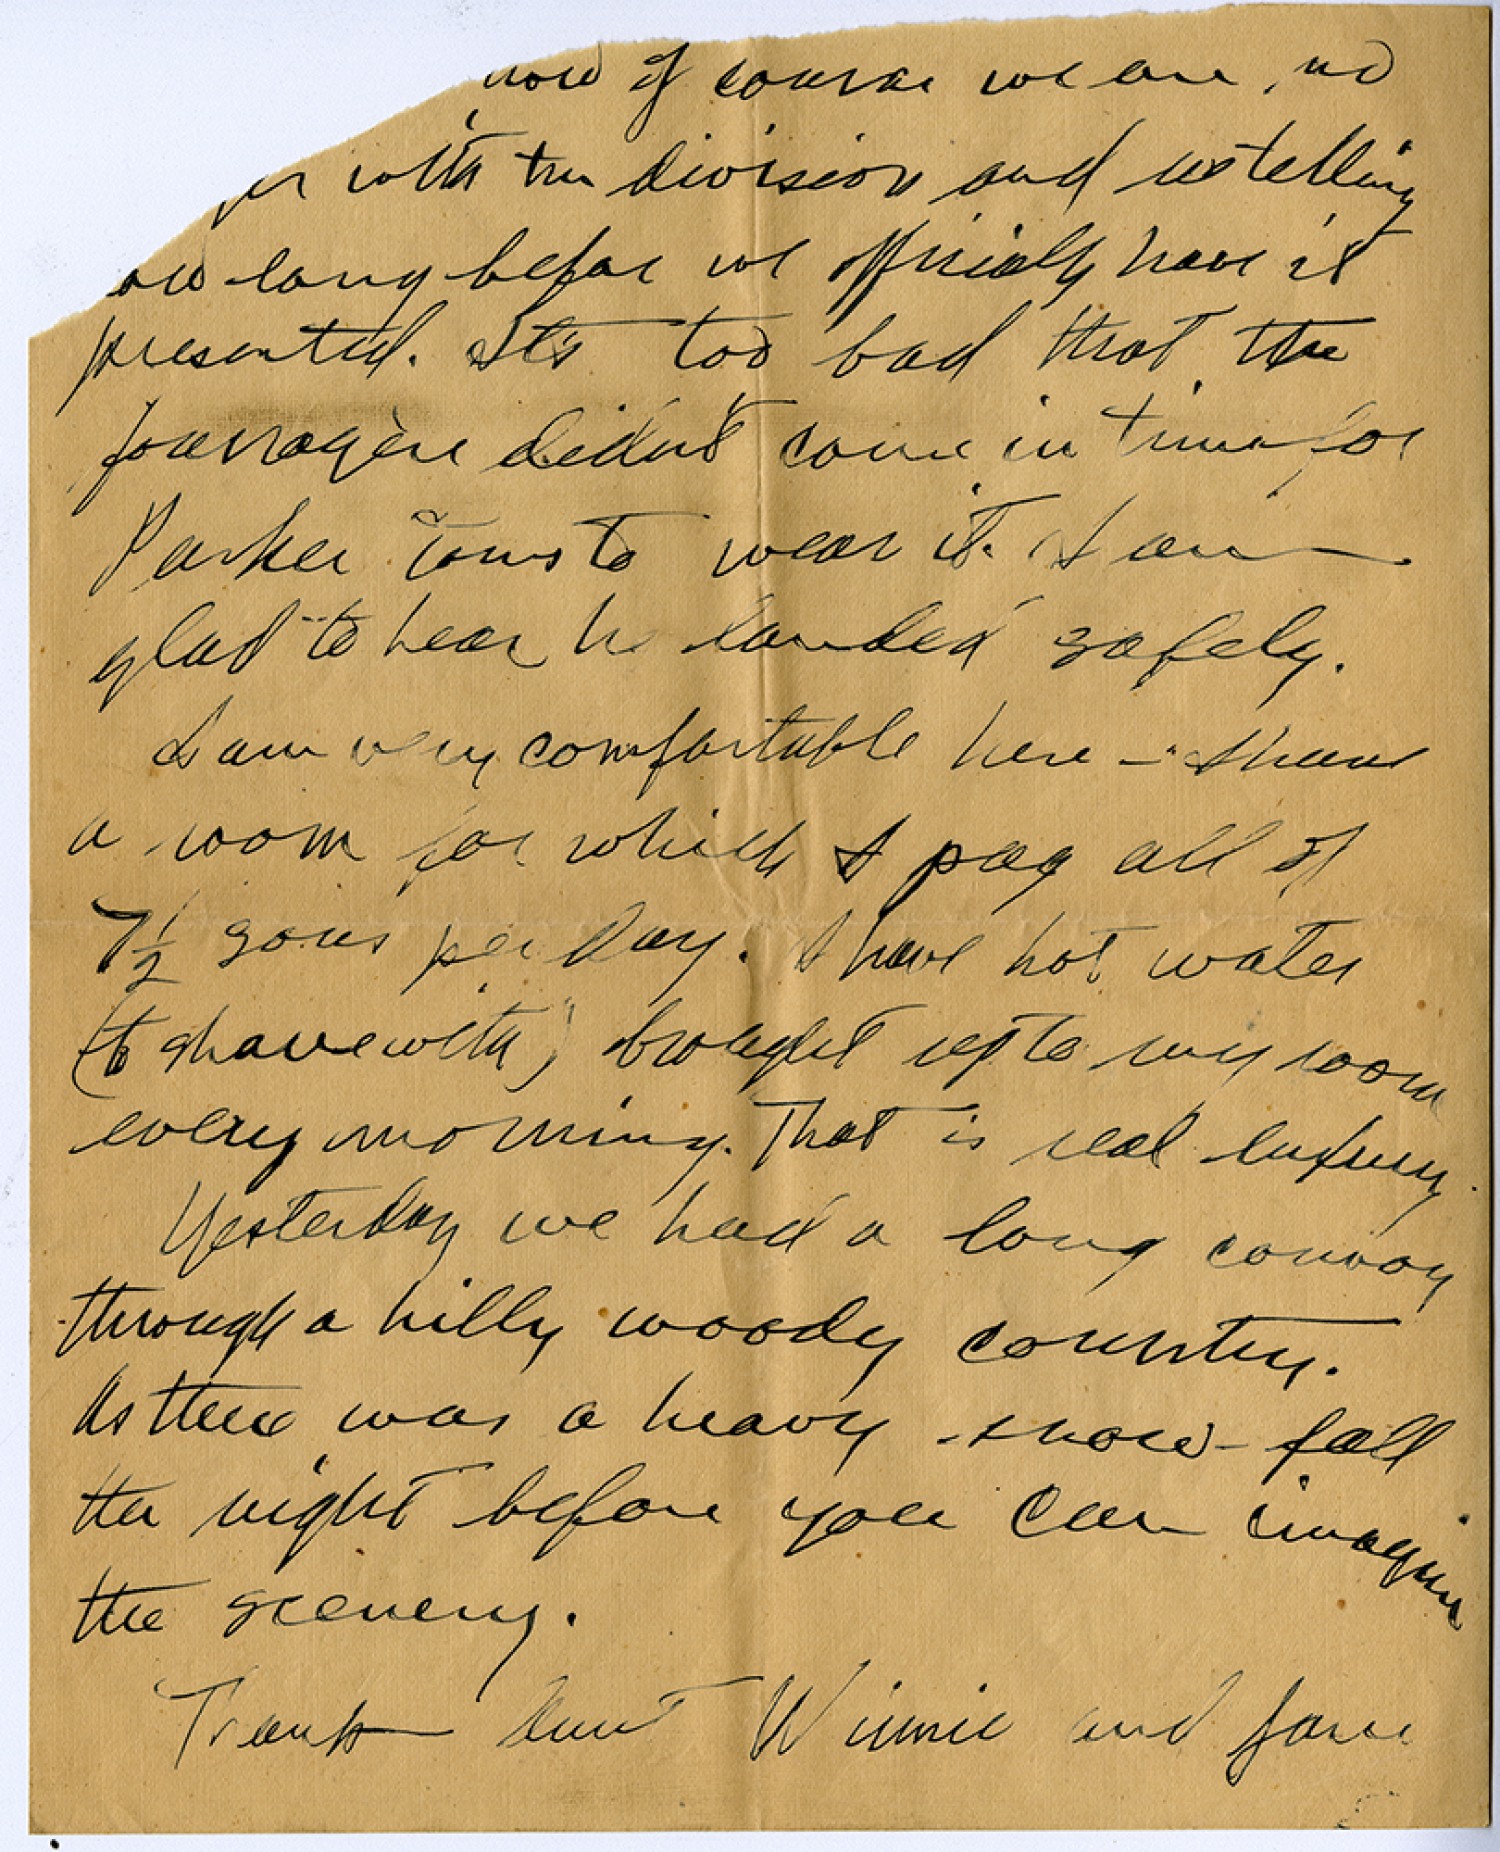 now of course we are no
with the division and no telling
how long before we officially have it
presented. It's too bad that the
fourragère didn't come in time for
Parker to wear it. I am
glad to hear he landed safely.
I am very comfortable here - I have
a room for which I pay all of
7½ sous per day. I have hot water
(to shave with) brought up to my room
every morning. That is real luxury.
Yesterday we had a long convoy
through a hilly woody country.
As there was a heavy snow-fall
the night before you can imagine
the scenery.
Thank Aunt Winnie and Jane